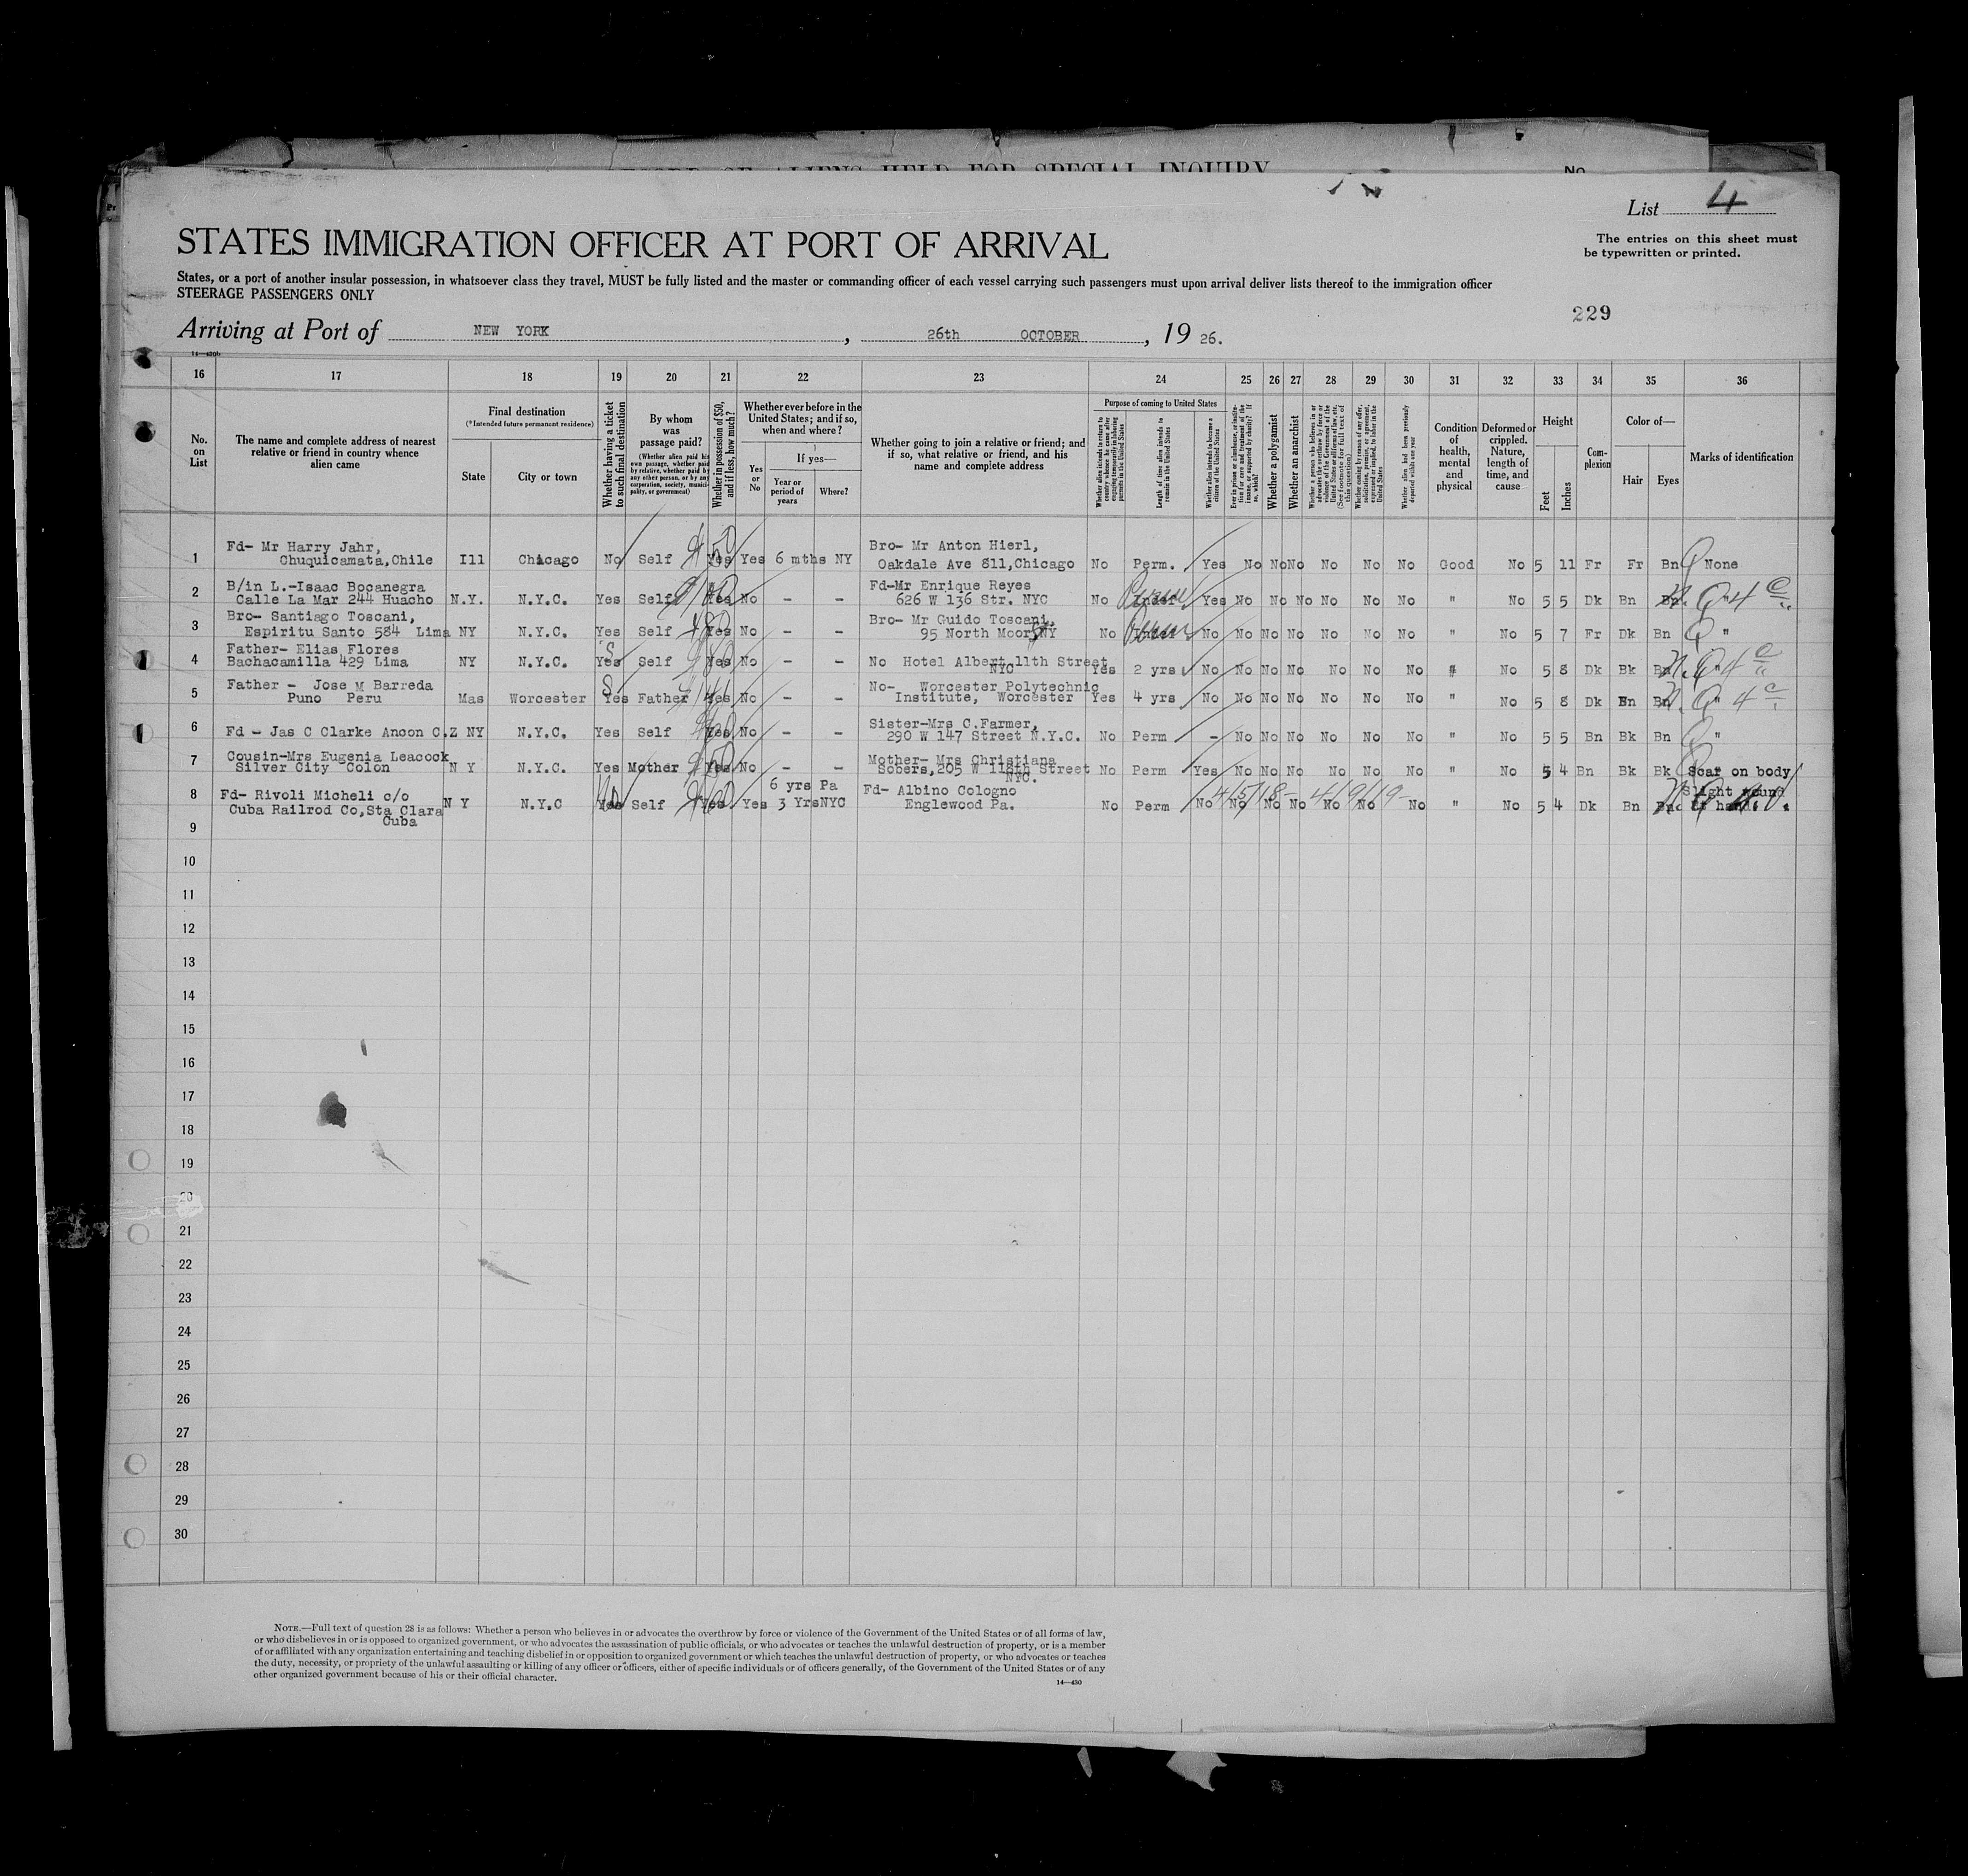 List 4
STATES IMMIGRATION OFFICER AT PORT OF ARRIVAL
The entries on this sheet must
be typewritten or printed.
States, or a port of another insular possession, in whatsoever class they travel, MUST be fully listed and the master or commanding officer of each vessel carrying such passengers must upon arrival deliver lists thereof to the immigration officer
STEERAGE PASSENGERS ONLY
229
Arriving at Port of NEW YORK, 26th OCTOBER, 19 26.
16 17 18 19 20 21 22 23 24 25 26 27 28 29 30 31 32 33 34 35 36
No. on List
The name and complete address of nearest relative or friend in country whence alien came
Final destination
(*Intended future permanent residence)
State
City or town
Whether having a ticket to such final destination
By whom was passage paid?
(Whether alien paid his own passage, whether paid by relative, whether paid by any other person, or by any corporation, society, municipality, or government)
Whether in possession of $50, and if less, how much?
Whether ever before in the United States; and if so, when and where?
Yes or No
If yes—
Year or period of years
Where?
Whether going to join a relative or friend; and if so, what relative or friend, and his name and complete address
Purpose of coming to United States
Length of time alien intends to remain in the United States
Whether alien intends to become a citizen of the United States
Whether a polygamist
Whether an anarchist
Condition of health, mental and physical
Deformed or crippled. Nature, length of time, and cause
Height
Feet
Inches
Complexion
Color of—
Hair
Eyes
Marks of identification
1 Fd- Mr Harry Jahr, Chuquicamata,Chile Ill Chicago No Self $50 Yes Yes 6 mths NY Bro- Mr Anton Hierl, Oakdale Ave 811,Chicago No Perm. Yes No No No No No No Good No 5 11 Fr Fr Bn None
2 B/in L.-Isaac Bocanegra Calle La Mar 244 Huacho N.Y. N.Y.C. Yes Self Yes No - - Fd-Mr Enrique Reyes 626 W 136 Str. NYC No Perm Yes No No No No No No " No 5 5 Dk Bn Bn "
3 Bro- Santiago Toscani, Espiritu Santo 584 Lima NY N.Y.C. Yes Self Yes No - - Bro- Mr Guido Toscani, 95 North Moor St NY No Perm No No No No No No No " No 5 7 Fr Dk Bn "
4 Father- Elias Flores Bachacamilla 429 Lima NY N.Y.C. Yes Self Yes No - - No Hotel Albert 11th Street NYC Yes 2 yrs No No No No No No No " No 5 8 Dk Bk Bn "
5 Father - Jose M Barreda Puno Peru Mas Worcester Yes Father Yes No - - No- Worcester Polytechnic Institute, Worcester Yes 4 yrs No No No No No No No " No 5 8 Dk Bn Bn "
6 Fd - Jas C Clarke Ancon C.Z NY N.Y.C. Yes Self Yes No - - Sister-Mrs C.Farmer, 290 W 147 Street N.Y.C. No Perm - No No No No No No " No 5 5 Bn Bk Bn "
7 Cousin-Mrs Eugenia Leacock Silver City Colon N Y N.Y.C. Yes Mother $50 Yes No - - Mother- Mrs Christiana Sobers,205 W 118th Street NYC. No Perm Yes No No No No No No " No 5 4 Bn Bk Bk Scar on body
8 Fd- Rivoli Micheli c/o Cuba Railrod Co,Sta Clara Cuba N Y N.Y.C Yes Self Yes Yes 6 yrs Pa 3 Yrs NYC Fd- Albino Cologno Englewood Pa. No Perm No No No No No No No " No 5 4 Dk Bn Bn Slight
9
10
11
12
13
14
15
16
17
18
19
20
21
22
23
24
25
26
27
28
29
30
NOTE.—Full text of question 28 is as follows: Whether a person who believes in or advocates the overthrow by force or violence of the Government of the United States or of all forms of law,
or who disbelieves in or is opposed to organized government, or who advocates the assassination of public officials, or who advocates or teaches the unlawful destruction of property, or is a member
of or affiliated with any organization entertaining and teaching disbelief in or opposition to organized government or which teaches the unlawful destruction of property, or who advocates or teaches
the duty, necessity, or propriety of the unlawful assaulting or killing of any officer or officers, either of specific individuals or of officers generally, of the Government of the United States or of any
other organized government because of his or their official character.
14—430